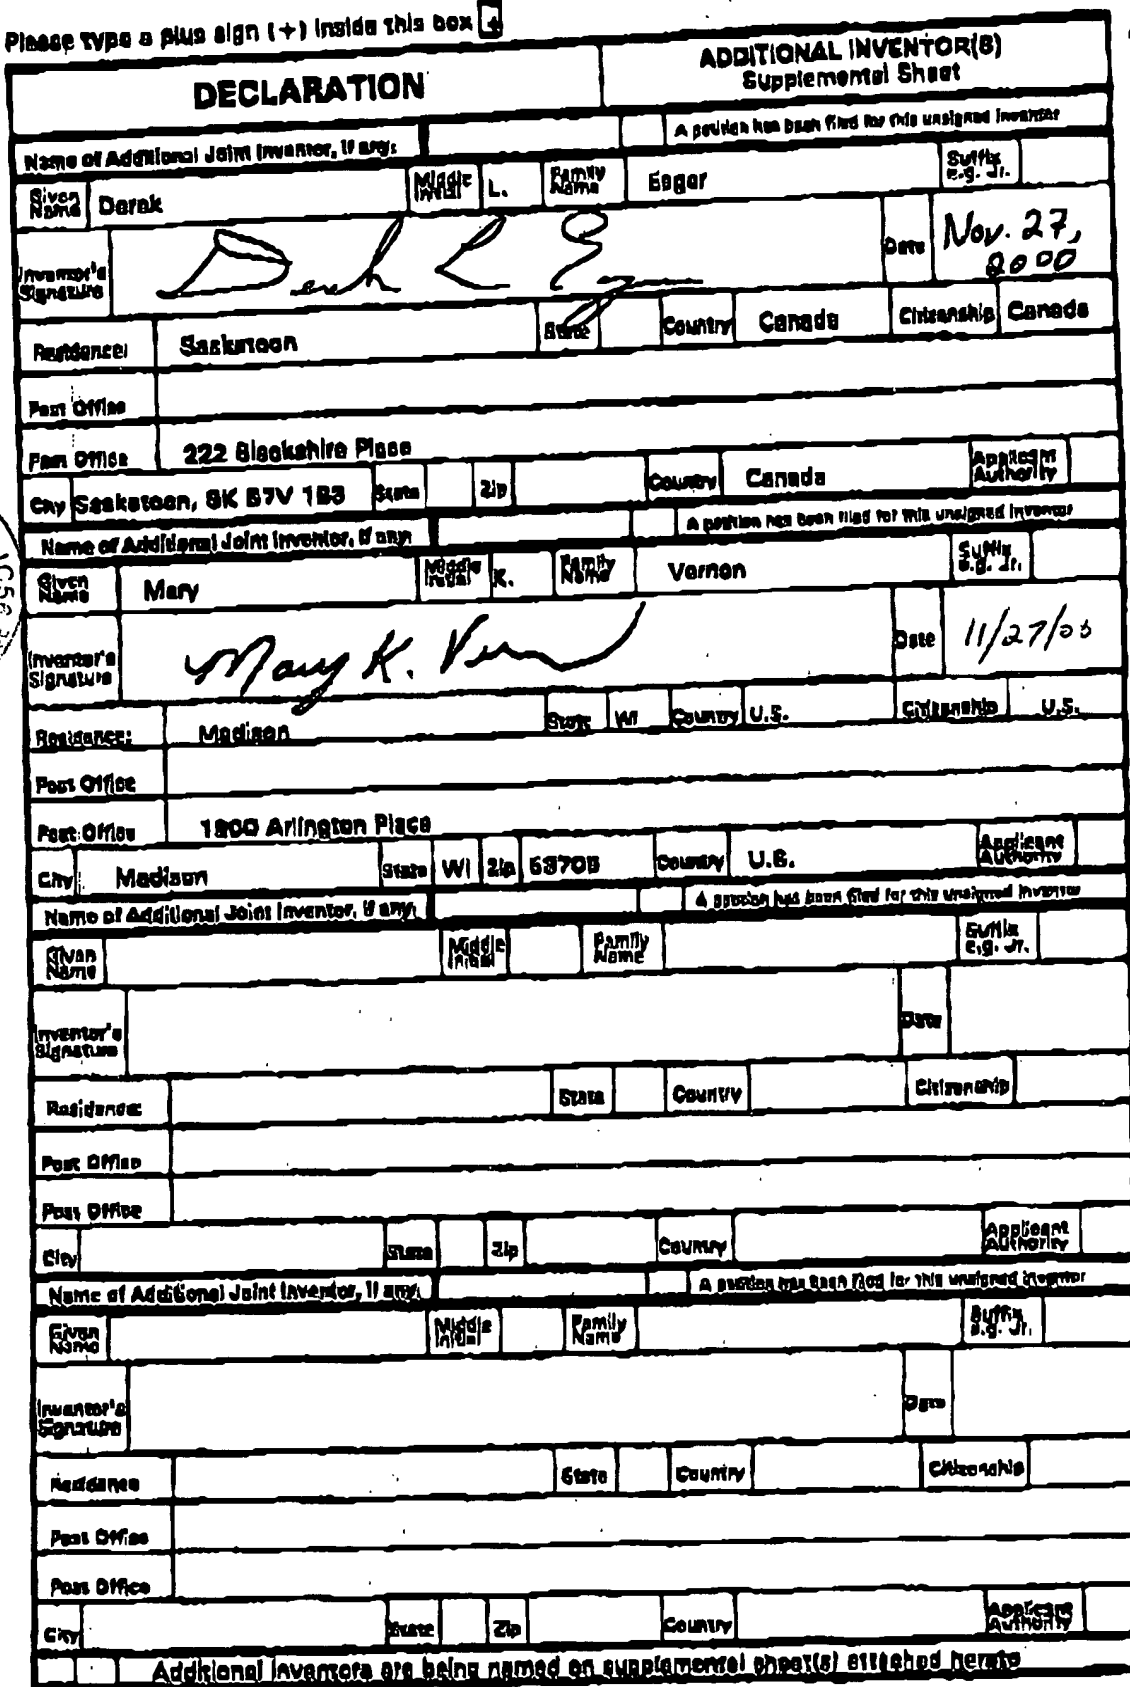 Please type a plus sign (+) inside this box +
DECLARATION
ADDITIONAL INVENTOR(S)
Supplemental Sheet
Name of Additional Joint Inventor, if any:
A petition has been filed for this unsigned inventor
Given Name Derek Middle Initial L. Family Name Eager Suffix e.g. Jr.
Inventor's Signature Derek L Eager Date Nov. 27, 2000
Residence: Saskatoon State Country Canada Citizenship Canada
Post Office
Post Office 222 Blackshire Place
City Saskatoon, SK State Zip Country Canada Applicant Authority
Name of Additional Joint Inventor, if any:
A petition has been filed for this unsigned inventor
Given Name Mary Middle Initial K. Family Name Vernon Suffix e.g. Jr.
Inventor's Signature Mary K. Vernon Date 11/27/00
Residence: Madison State WI Country U.S. Citizenship U.S.
Post Office
Post Office Arlington Place
City Madison State WI Zip Country U.S. Applicant Authority
Name of Additional Joint Inventor, if any:
A petition has been filed for this unsigned inventor
Given Name Middle Initial Family Name Suffix e.g. Jr.
Inventor's Signature Date
Residence: State Country Citizenship
Post Office
Post Office
City State Zip Country Applicant Authority
Name of Additional Joint Inventor, if any:
A petition has been filed for this unsigned inventor
Given Name Middle Initial Family Name Suffix e.g. Jr.
Inventor's Signature Date
Residence State Country Citizenship
Post Office
Post Office
City State Zip Country Applicant Authority
Additional inventors are being named on supplemental sheet(s) attached hereto